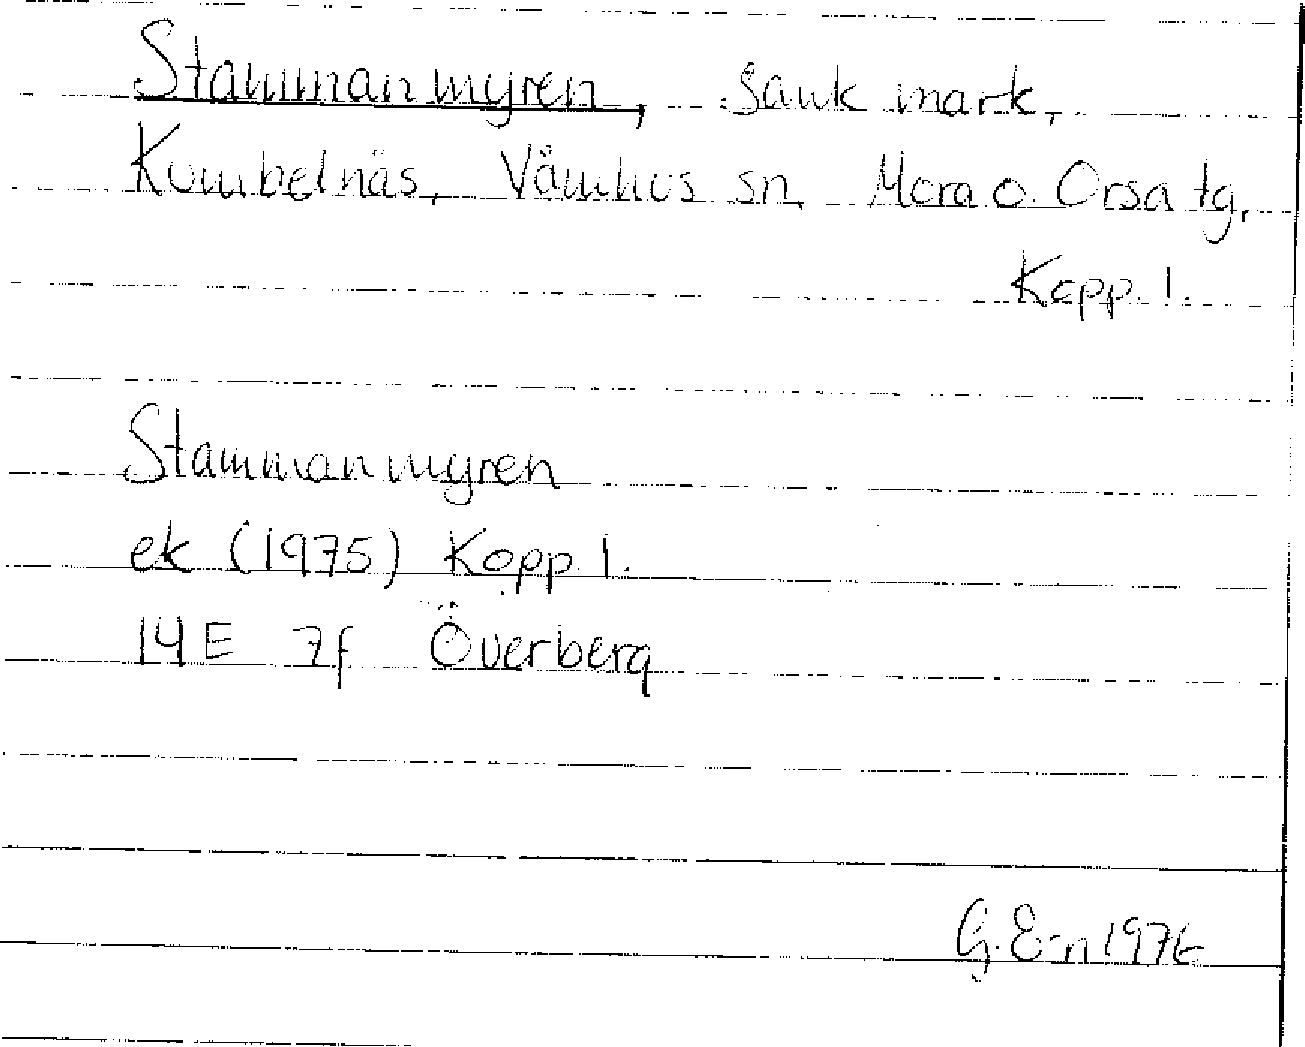 Stammanmyren, Sank mark,
Kumbelnäs, Våmhus sn, Mora o. Orsa tg,
Kopp. l.
Stammanmyren
ek (1975) Kopp. l.
14E 7f Överberg
G. E-n 1976